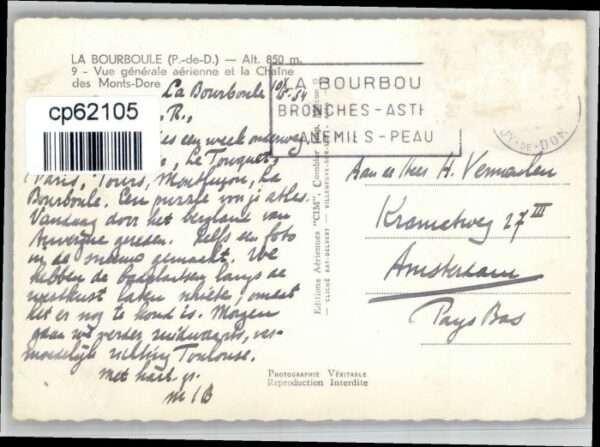 LA BOURBOULE (P.-de-D.) — Alt. 850 m.
9 - Vue générale aérienne et la Chaîne
des Monts-Dore
La Bourboule
54
cp62105
. R.,
een week onderweg
, Le Touquet,
Paris, Tours, Montluçon, La
Bourboule. Een puzzle voor je atlas.
Vandaag door het bergland van
Auvergne gereden. Zelfs een foto
in de sneeuw gemaakt. We
hebben de badplaatsen langs de
westkust laten schieten, omdat
het er nog te koud is. Morgen
gaan we verder zuidwaarts, ver-
moedelijk richting Toulouse.
Met hart. gr.
LA BOURBOU
BRONCHES - ASTH
ANEMIES - PEAU
PUY-DE-DOME
Editions Aériennes "CIM", Combier
CLICHÉ RAY-DELVERT - VILLENEUVE-SUR-
Aan de Heer H. Vermeulen
Kromatweg 27 III
Amsterdam
Pays Bas
PHOTOGRAPHIE VÉRITABLE
Reproduction Interdite